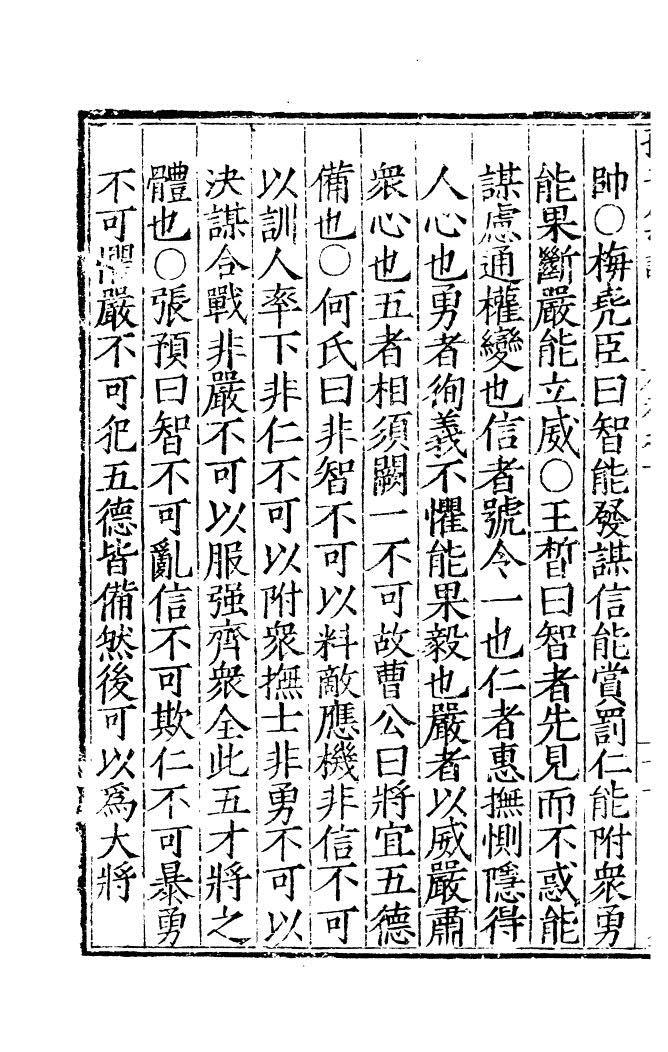 帥○梅堯臣曰智能發謀信能賞罰仁能附衆勇
能果斷嚴能立威○王晳曰智者先見而不惑能
謀慮通權變也信者號令一也仁者惠撫惻隱得
人心也勇者徇義不懼能果毅也嚴者以威嚴肅
衆心也五者相須闕一不可故曹公曰將宜五德
備也○何氏曰非智不可以料敵應機非信不可
以訓人率下非仁不可以附衆撫士非勇不可以
決謀合戰非嚴不可以服强齊衆全此五才將之
體也○張預曰智不可亂信不可欺仁不可暴勇
不可懼嚴不可犯五德皆備然後可以爲大將